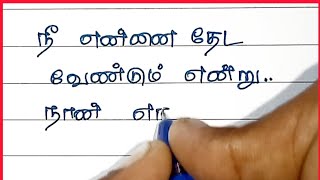 நீ என்னை தேட
வேண்டும் என்று..
நான்